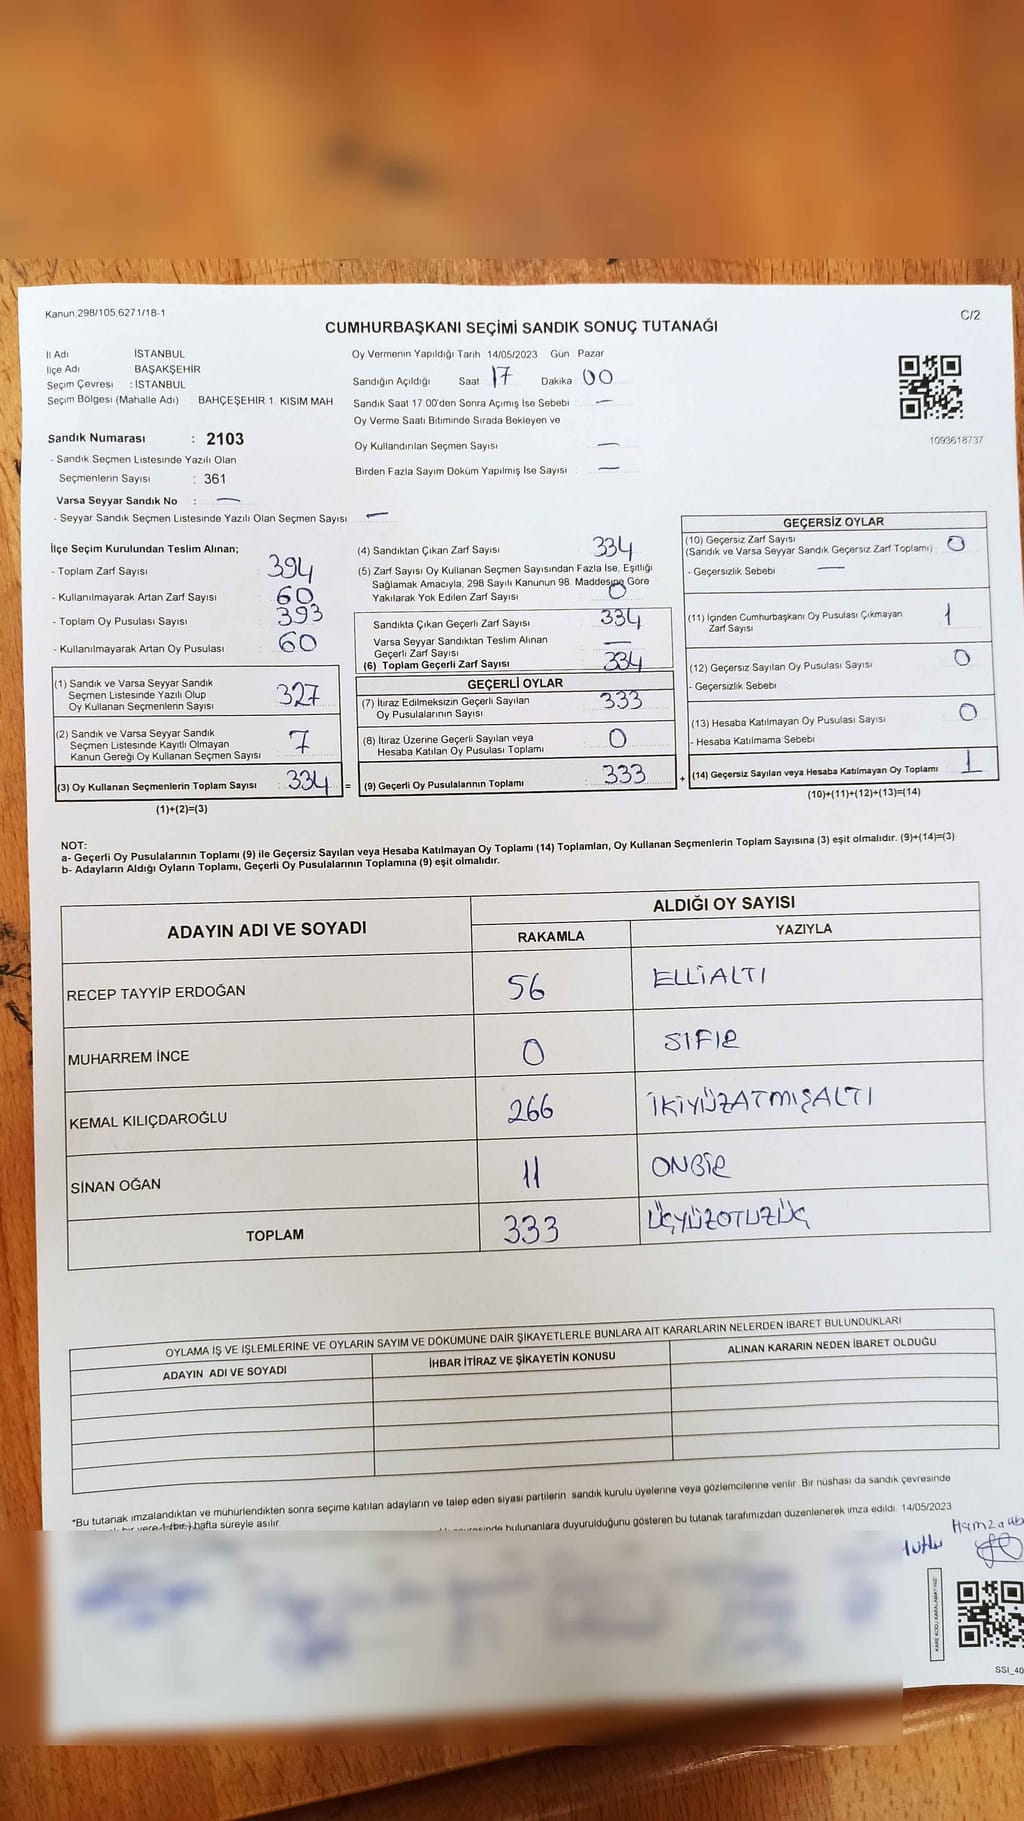 Kanun,298/105,6271/18-1
C/2
CUMHURBAŞKANI SEÇİMİ SANDIK SONUÇ TUTANAĞI
İl Adı İSTANBUL
İlçe Adı BAŞAKŞEHİR
Seçim Çevresi : İSTANBUL
Seçim Bölgesi (Mahalle Adı) : BAHÇEŞEHİR 1. KISIM MAH.
Sandık Numarası : 2103
- Sandık Seçmen Listesinde Yazılı Olan
Seçmenlerin Sayısı : 361
Varsa Seyyar Sandık No : —
- Seyyar Sandık Seçmen Listesinde Yazılı Olan Seçmen Sayısı : —
Oy Vermenin Yapıldığı Tarih 14/05/2023 Gün : Pazar
Sandığın Açıldığı Saat 17 Dakika 00
Sandık Saat 17.00'den Sonra Açımış İse Sebebi : —
Oy Verme Saati Bitiminde Sırada Bekleyen ve
Oy Kullandırılan Seçmen Sayısı : —
Birden Fazla Sayım Döküm Yapılmış İse Sayısı : —
1093618737
İlçe Seçim Kurulundan Teslim Alınan;
- Toplam Zarf Sayısı : 394
- Kullanılmayarak Artan Zarf Sayısı : 60
- Toplam Oy Pusulası Sayısı : 393
- Kullanılmayarak Artan Oy Pusulası : 60
(1) Sandık ve Varsa Seyyar Sandık
Seçmen Listesinde Yazılı Olup
Oy Kullanan Seçmenlerin Sayısı : 327
(2) Sandık ve Varsa Seyyar Sandık
Seçmen Listesinde Kayıtlı Olmayan
Kanun Gereği Oy Kullanan Seçmen Sayısı : 7
(3) Oy Kullanan Seçmenlerin Toplam Sayısı : 334 =
(1)+(2)=(3)
(4) Sandıktan Çıkan Zarf Sayısı : 334
(5) Zarf Sayısı Oy Kullanan Seçmen Sayısından Fazla İse, Eşitliği
Sağlamak Amacıyla, 298 Sayılı Kanunun 98. Maddesine Göre
Yakılarak Yok Edilen Zarf Sayısı : 0
Sandıkta Çıkan Geçerli Zarf Sayısı : 334
Varsa Seyyar Sandıktan Teslim Alınan
Geçerli Zarf Sayısı : —
(6) Toplam Geçerli Zarf Sayısı : 334
GEÇERLİ OYLAR
(7) İtiraz Edilmeksizin Geçerli Sayılan
Oy Pusulalarının Sayısı : 333
(8) İtiraz Üzerine Geçerli Sayılan veya
Hesaba Katılan Oy Pusulası Toplamı : 0
(9) Geçerli Oy Pusulalarının Toplamı : 333 +
GEÇERSİZ OYLAR
(10) Geçersiz Zarf Sayısı
(Sandık ve Varsa Seyyar Sandık Geçersiz Zarf Toplamı) : 0
- Geçersizlik Sebebi : —
(11) İçinden Cumhurbaşkanı Oy Pusulası Çıkmayan
Zarf Sayısı : 1
(12) Geçersiz Sayılan Oy Pusulası Sayısı : 0
- Geçersizlik Sebebi :
(13) Hesaba Katılmayan Oy Pusulası Sayısı : 0
- Hesaba Katılmama Sebebi :
(14) Geçersiz Sayılan veya Hesaba Katılmayan Oy Toplamı : 1
(10)+(11)+(12)+(13)=(14)
NOT:
a- Geçerli Oy Pusulalarının Toplamı (9) ile Geçersiz Sayılan veya Hesaba Katılmayan Oy Toplamı (14) Toplamları, Oy Kullanan Seçmenlerin Toplam Sayısına (3) eşit olmalıdır. (9)+(14)=(3)
b- Adayların Aldığı Oyların Toplamı, Geçerli Oy Pusulalarının Toplamına (9) eşit olmalıdır.
ADAYIN ADI VE SOYADI ALDIĞI OY SAYISI
RAKAMLA YAZIYLA
RECEP TAYYİP ERDOĞAN 56 ELLİALTI
MUHARREM İNCE 0 SIFIR
KEMAL KILIÇDAROĞLU 266 İKİYÜZATMIŞALTI
SİNAN OĞAN 11 ONBİR
TOPLAM 333 ÜÇYÜZOTUZÜÇ
OYLAMA İŞ VE İŞLEMLERİNE VE OYLARIN SAYIM VE DÖKÜMÜNE DAİR ŞİKAYETLERLE BUNLARA AİT KARARLARIN NELERDEN İBARET BULUNDUKLARI
ADAYIN ADI VE SOYADI İHBAR İTİRAZ VE ŞİKAYETİN KONUSU ALINAN KARARIN NEDEN İBARET OLDUĞU
*Bu tutanak imzalandıktan ve mühürlendikten sonra seçime katılan adayların ve talep eden siyasi partilerin sandık kurulu üyelerine veya gözlemcilerine verilir. Bir nüshası da sandık çevresinde
bir yere 1 (bir) hafta süreyle asılır.
çevresinde bulunanlara duyurulduğunu gösteren bu tutanak tarafımızdan düzenlenerek imza edildi. 14/05/2023
KARE KODU KARALAMAYINIZ!
SSI_40